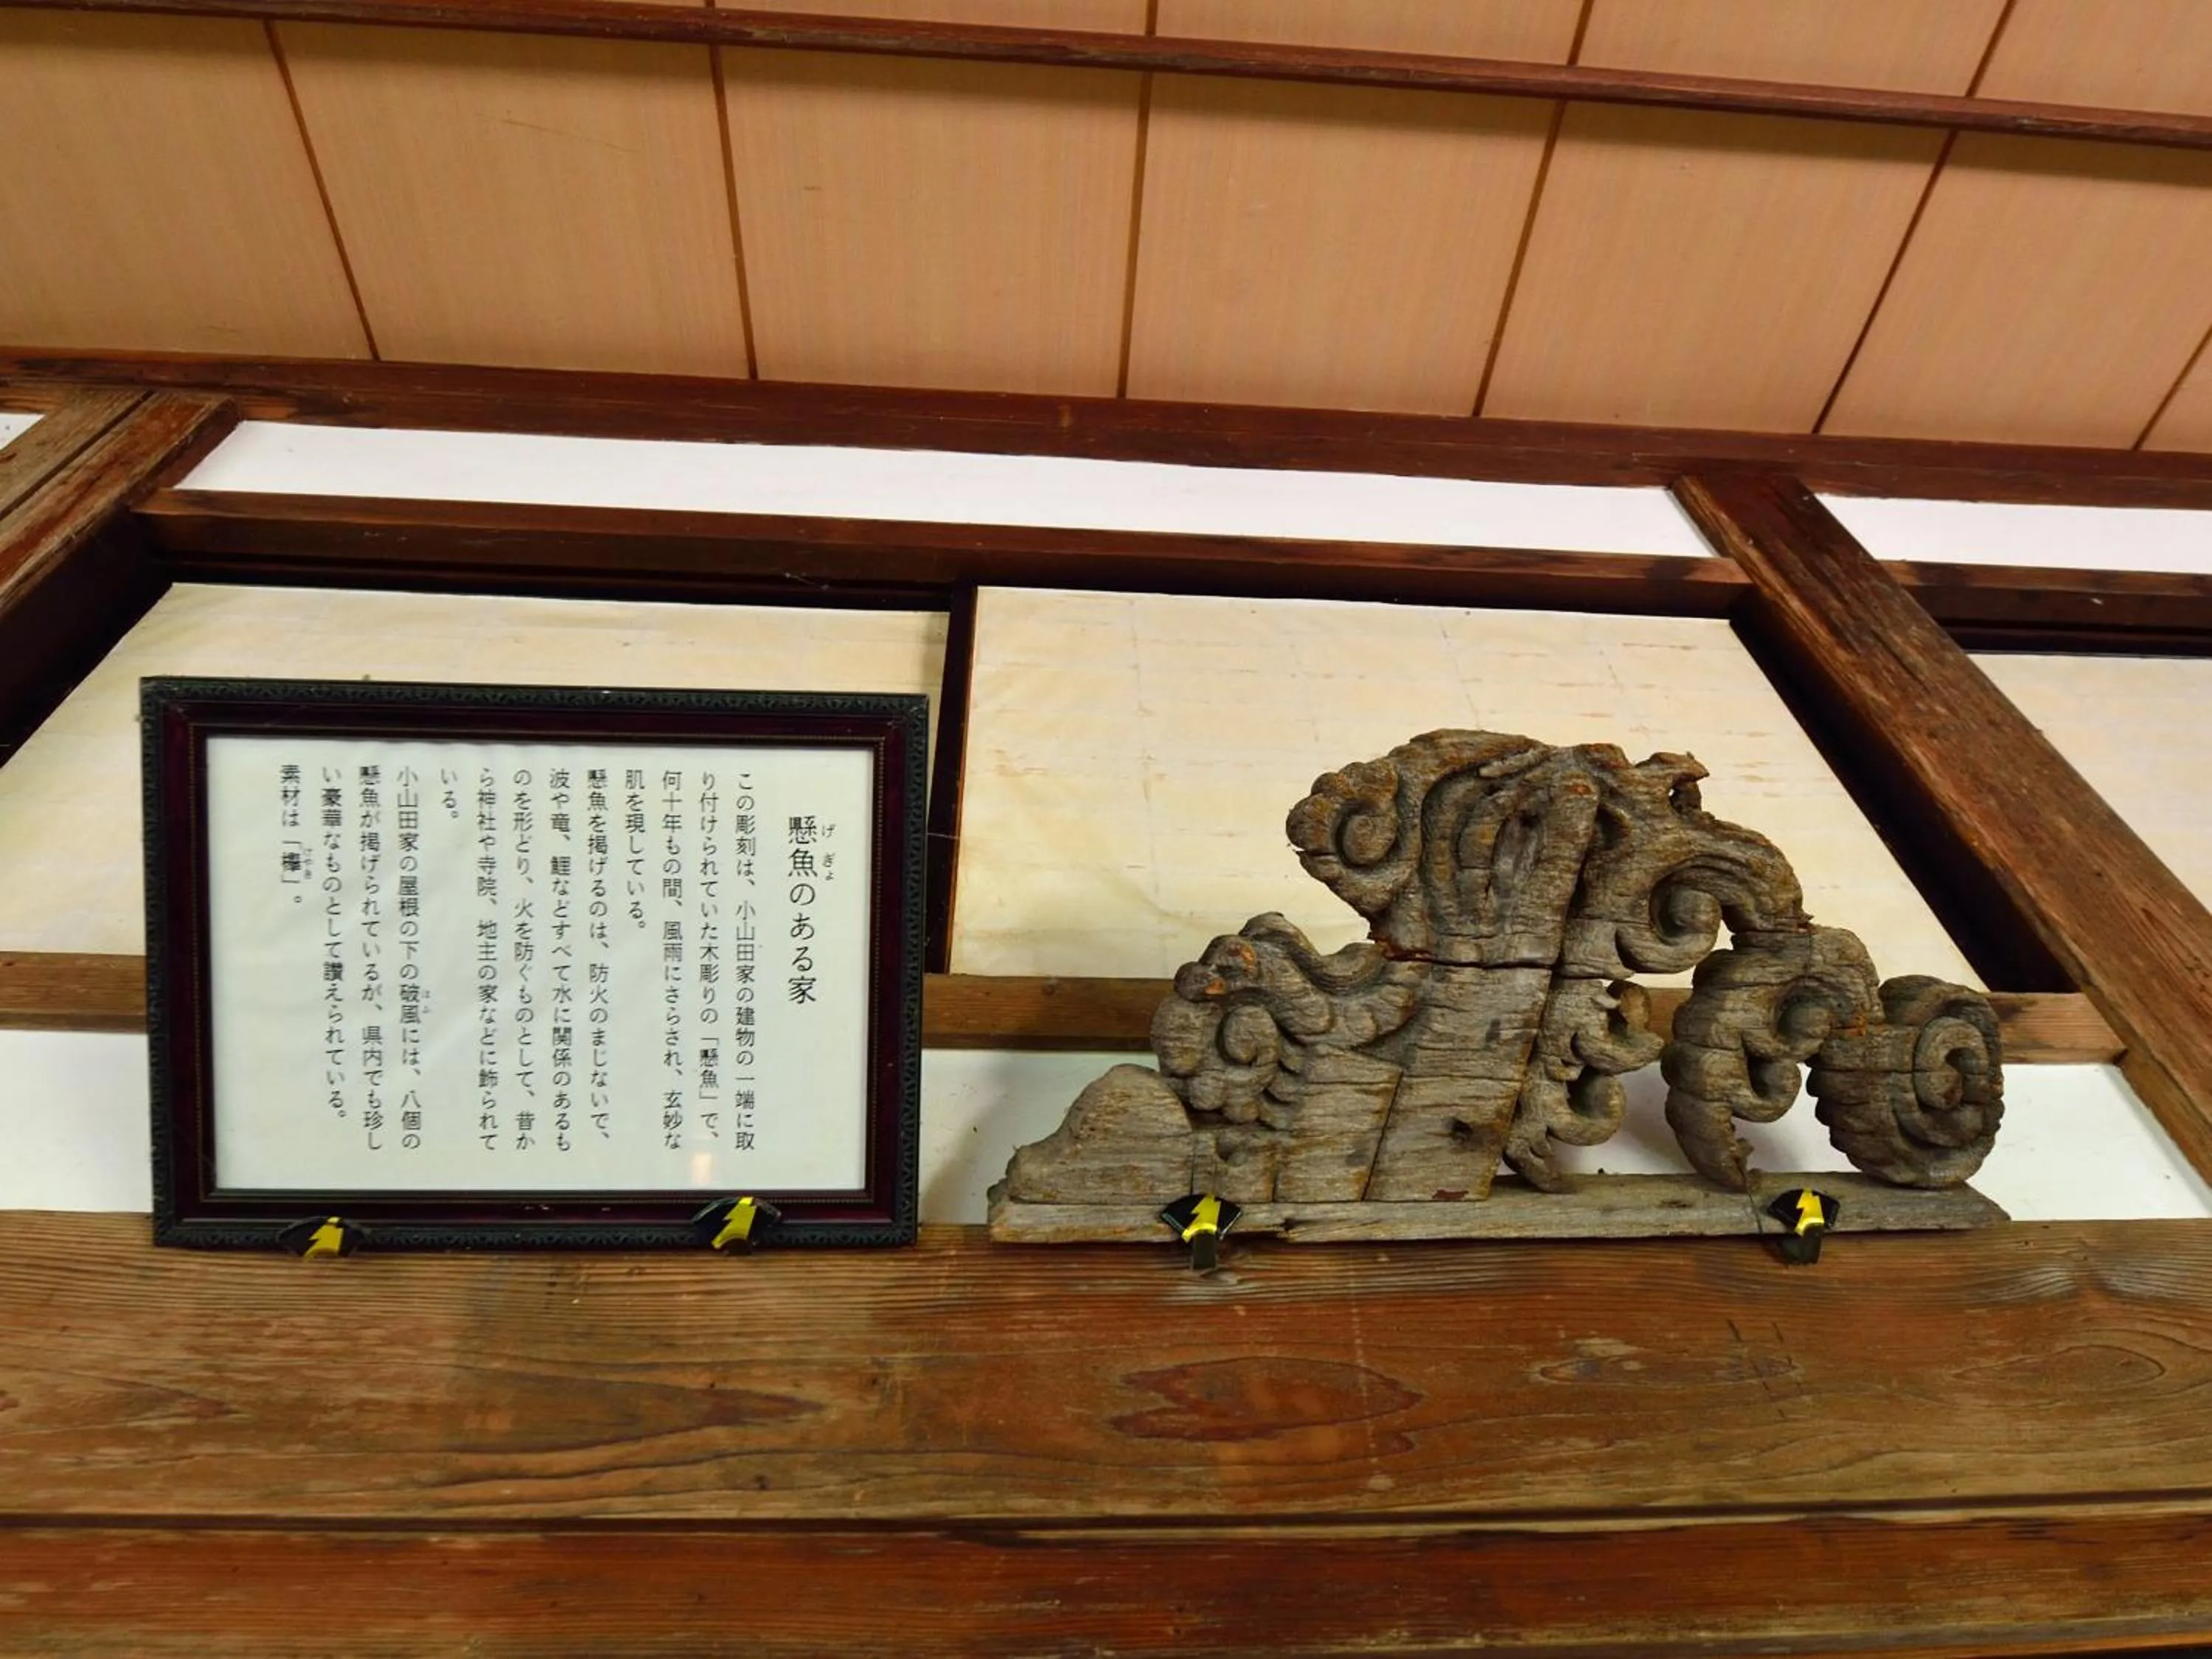 懸魚のある家
げぎょ
この彫刻は、小山田家の建物の一端に取
り付けられていた木彫りの「懸魚」で、
何十年もの間、風雨にさらされ、玄妙な
肌を現している。
懸魚を掲げるのは、防火のまじないで、
波や竜、鯉などすべて水に関係のあるも
のを形どり、火を防ぐものとして、昔か
ら神社や寺院、地主の家などに飾られて
いる。
小山田家の屋根の下の破風には、八個の
はふ
懸魚が掲げられているが、県内でも珍し
い豪華なものとして讃えられている。
素材は「欅」。
けやき